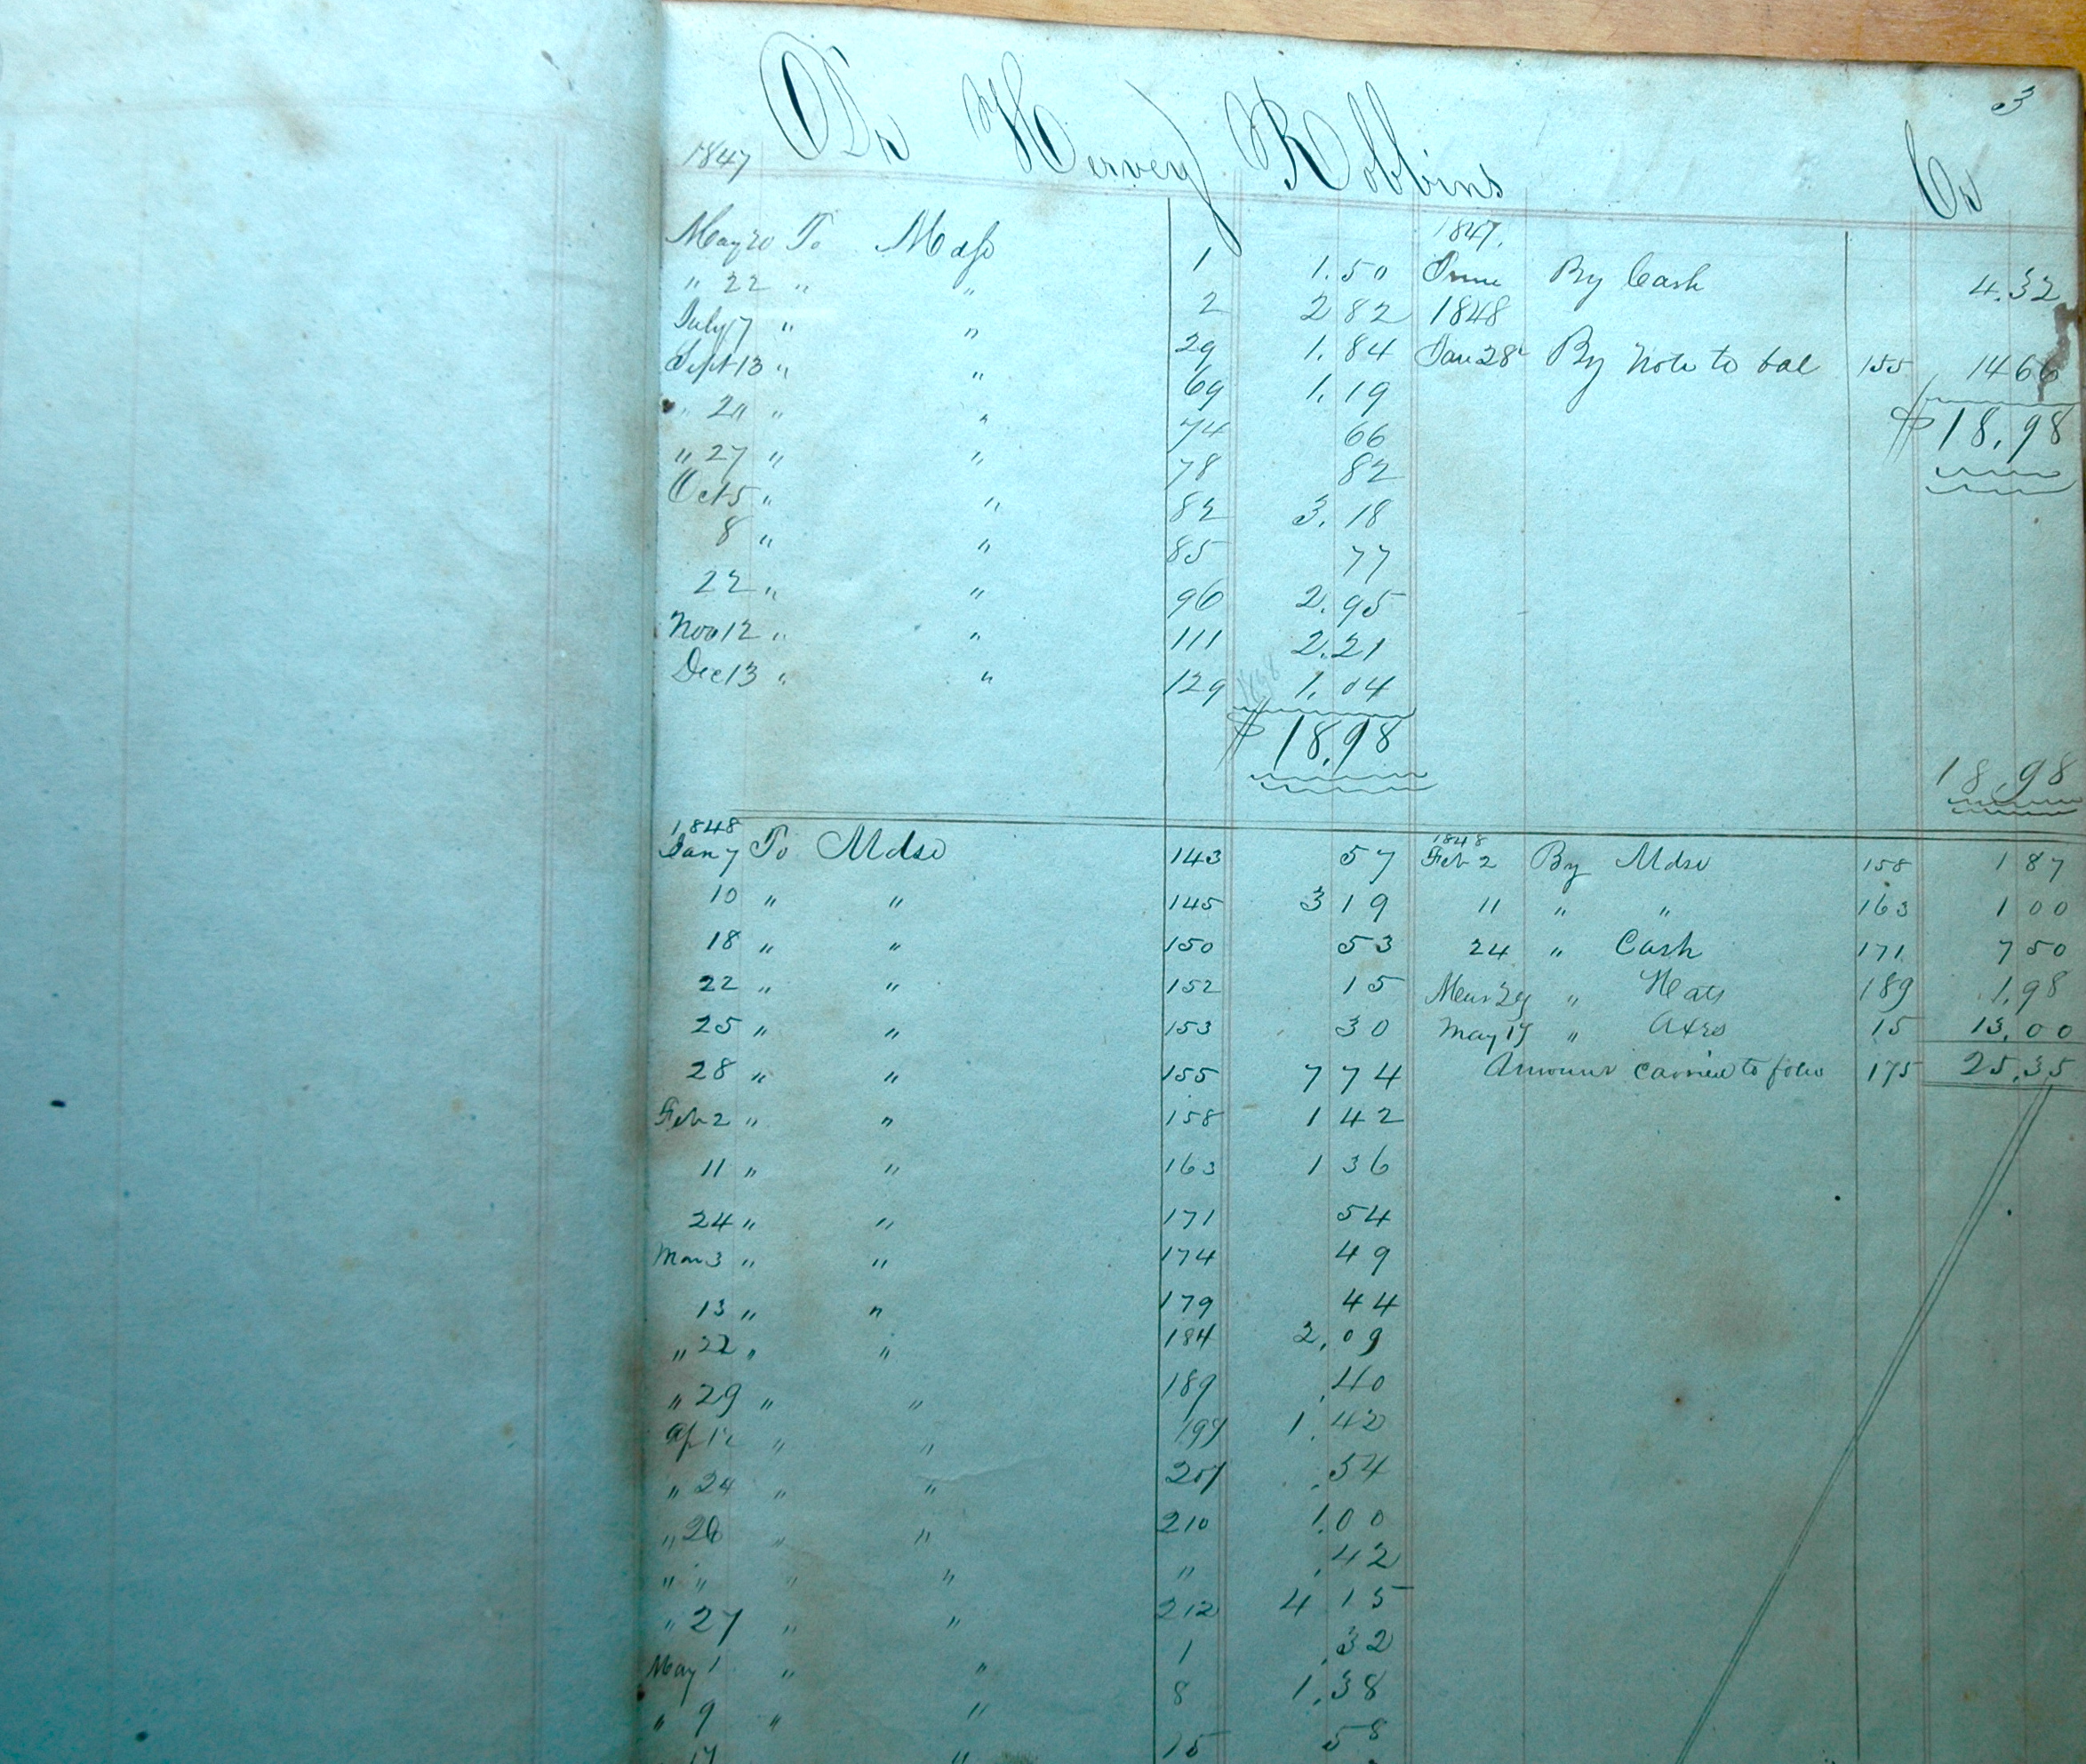 3
Dr Hervey Robbins Cr
1847
May 20 To Mdse 1 1.50
" 22 " " 2 2 82
July 7 " " 29 1.84
Sept 13 " " 69 1.19
" " " 74 66
" 27 " " 78 82
Oct 5 " " 82 3.18
8 " " 85 77
22 " " 96 2.95
Nov 12 " " 111 2.21
Dec 13 " " 129 1.04
$18.98
1847.
June By Cash 4.32
1848
Jan 28 By Note to bal 155 14 66
$18.98
18 98
1848
Jan 7 To Mdse 143 57
10 " " 145 3 19
18 " " 150 53
22 " " 152 15
25 " " 153 30
28 " " 155 7 74
Feb 2 " " 158 1 42
11 " " 163 1 36
24 " " 171 54
Mar 3 " " 174 49
13 " " 179 44
" 22 " " 184 2,09
" 29 " " 189 .40
Ap 12 " " 199 1.42
" 24 " " 207 .54
" 26 " " 210 1.00
" " " " " .42
" 27 " " 212 4 15
May 1 " " 1 .32
" 9 " " 8 1.38
17 " 15 58
1848
Feb 2 By Mdse 158 1 87
11 " " 163 1 00
24 " Cash 171 7 50
Mar 29 " Hats 189 1.98
May 17 " Axes 15 13.00
Amount carried to folio 175 25.35